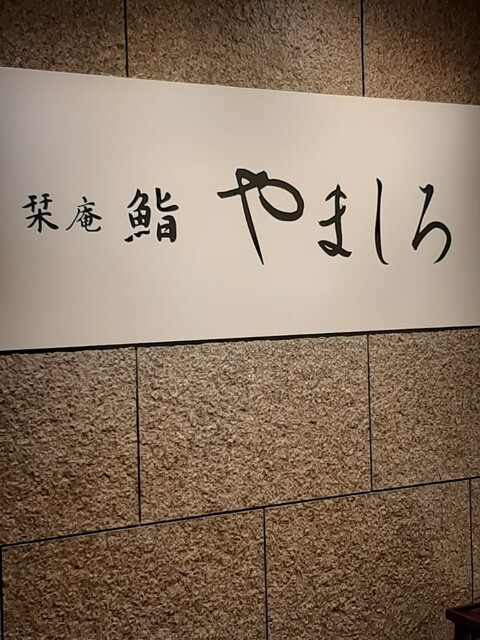 栞庵 鮨 やましろ